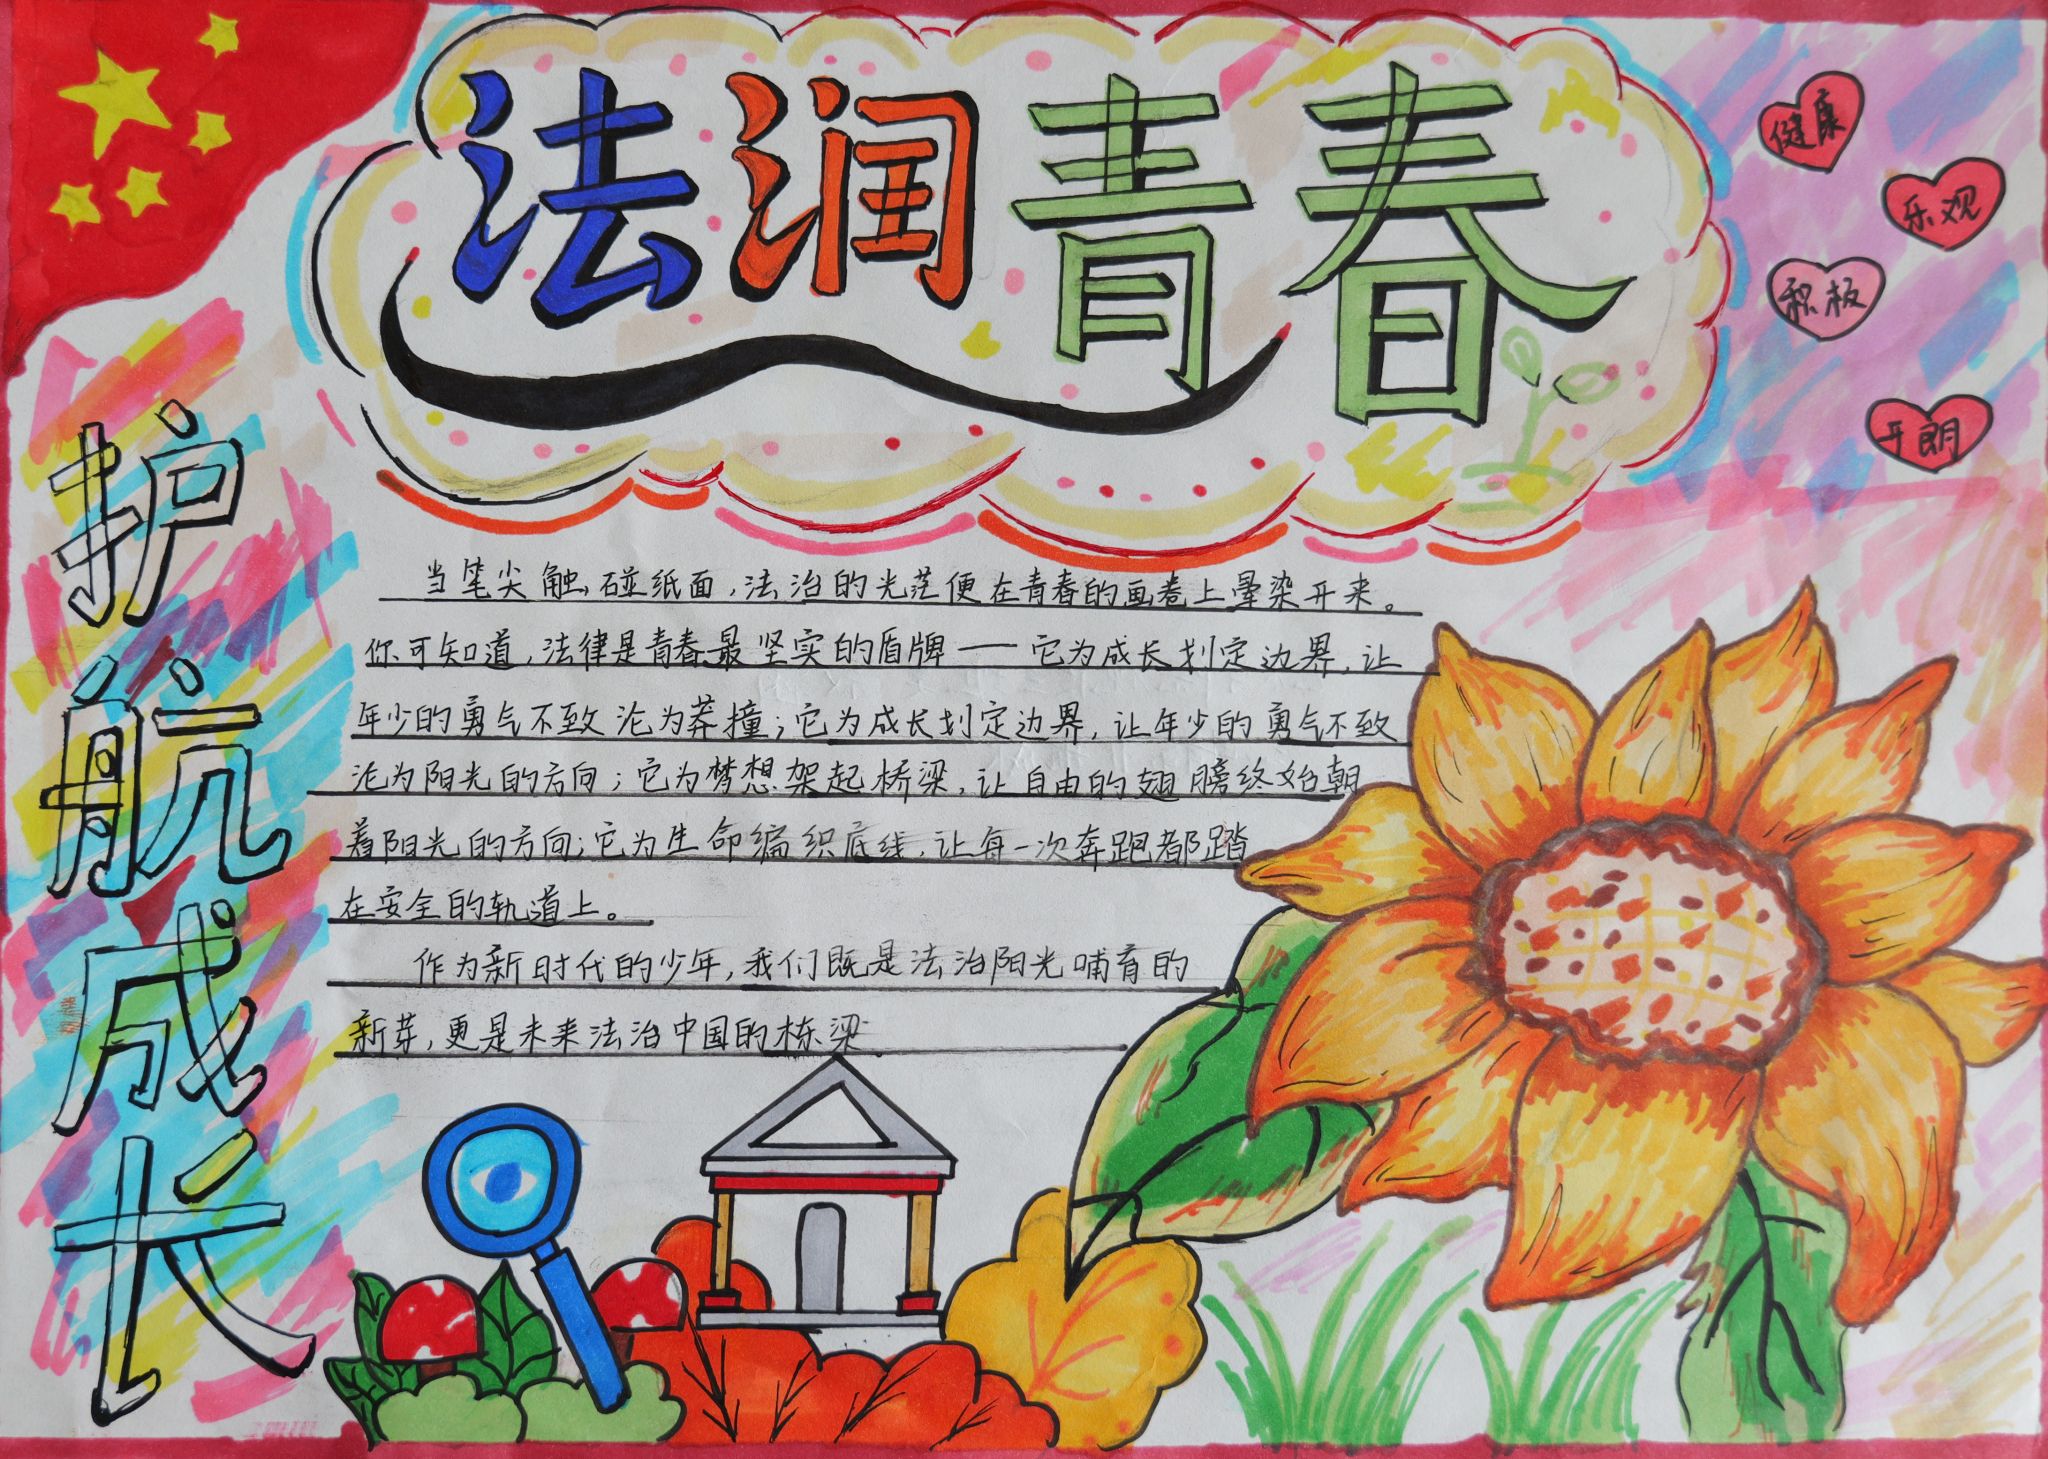 法润青春
护航成长
健康
乐观
积极
开朗
当笔尖触碰纸面,法治的光茫便在青春的画卷上晕染开来。
你可知道,法律是青春最坚实的盾牌——它为成长划定边界,让
年少的勇气不致沦为莽撞;它为成长划定边界,让年少的勇气不致
沦为阳光的方向;它为梦想架起桥梁,让自由的翅膀终始朝
着阳光的方向;它为生命编织底线,让每一次奔跑都踏
在安全的轨道上。
作为新时代的少年,我们既是法治阳光哺育的
新芽,更是未来法治中国的栋梁